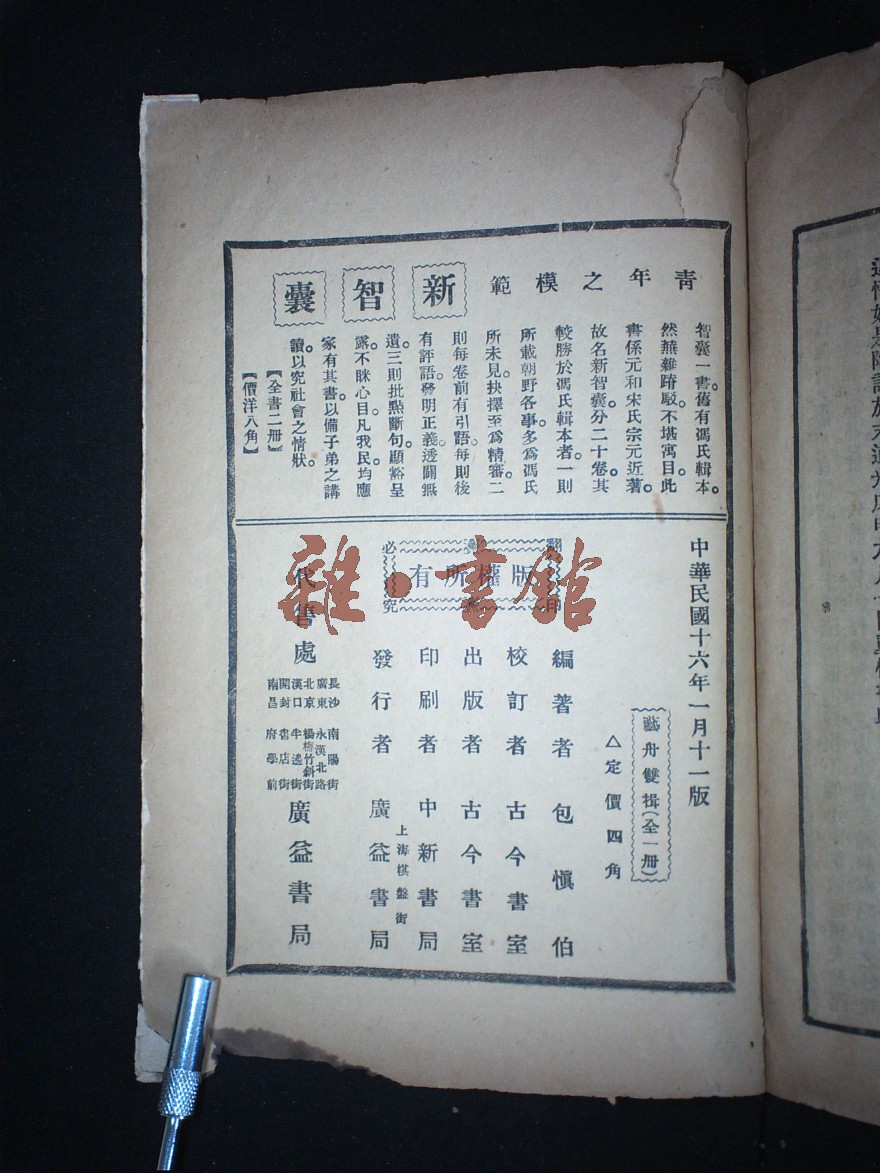 青年之模範
新智囊
智囊一書。舊有馮氏輯本。
然蕪雜踳駁。不堪寓目。此
書係元和宋氏宗元近著。
故名新智囊。分二十卷。其
較勝於馮氏輯本者。一則
所載朝野各事。多爲馮氏
所未見。抉擇至爲精審。二
則每卷前有引語。每則後
有評語。發明正義。透闢無
遺。三則批點斷句。顯豁呈
露。不眯心目。凡我民均應
家有其書。以備子弟之講
讀。以究社會之情狀。
【全書二冊】
【價洋八角】
中華民國十六年一月十一版
藝舟雙揖(全一冊)
△定價四角
版權所有
翻印
必究
編著者 包愼伯
校訂者 古今書室
出版者 古今書室
印刷者 中新書局
上海棋盤街
發行者 廣益書局
代售處
長沙 南陽街
廣東 永漢北路
北京 楊梅竹斜街
漢口
開封 書店街
南昌 府學前
廣益書局
雜·書館